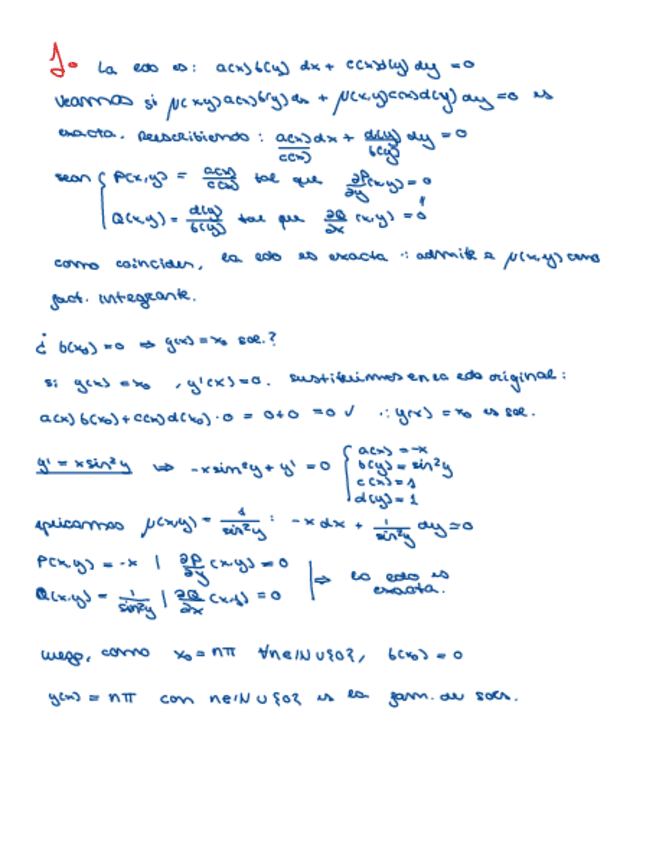 1. La edo es: a(x)b(y) dx + c(x)d(y) dy = 0
veamos si μ(x,y)a(x)b(y)dx + μ(x,y)c(x)d(y) dy = 0 es
exacta. Reescribiendo: a(x)/c(x) dx + d(y)/b(y) dy = 0
sean { P(x,y) = a(x)/c(x) tal que ∂P/∂y (x,y) = 0
Q(x,y) = d(y)/b(y) tal que ∂Q/∂x (x,y) = 0
como coinciden, la edo es exacta ∴ admite a μ(x,y) como
fact. integrante.
¿ b(x₀) = 0 ⇒ y(x) = x₀ sol.?
si y(x) = x₀ , y'(x) = 0. sustituimos en la edo original:
a(x) b(x₀) + c(x) d(x₀) · 0 = 0+0 = 0 ✓ ∴ y(x) = x₀ es sol.
y' = x sin²y ⇒ -x sin²y + y' = 0 { a(x) = -x
b(y) = sin²y
c(x) = 1
d(y) = 1
aplicamos μ(x,y) = 1/sin²y : -x dx + 1/sin²y dy = 0
P(x,y) = -x | ∂P/∂y (x,y) = 0
Q(x,y) = 1/sin²y | ∂Q/∂x (x,y) = 0 ⇒ la edo es
exacta.
luego, como x₀ = nπ ∀n∈ℕ∪{0}, b(x₀) = 0
y(x) = nπ con n∈ℕ∪{0} es la fam. de sols.